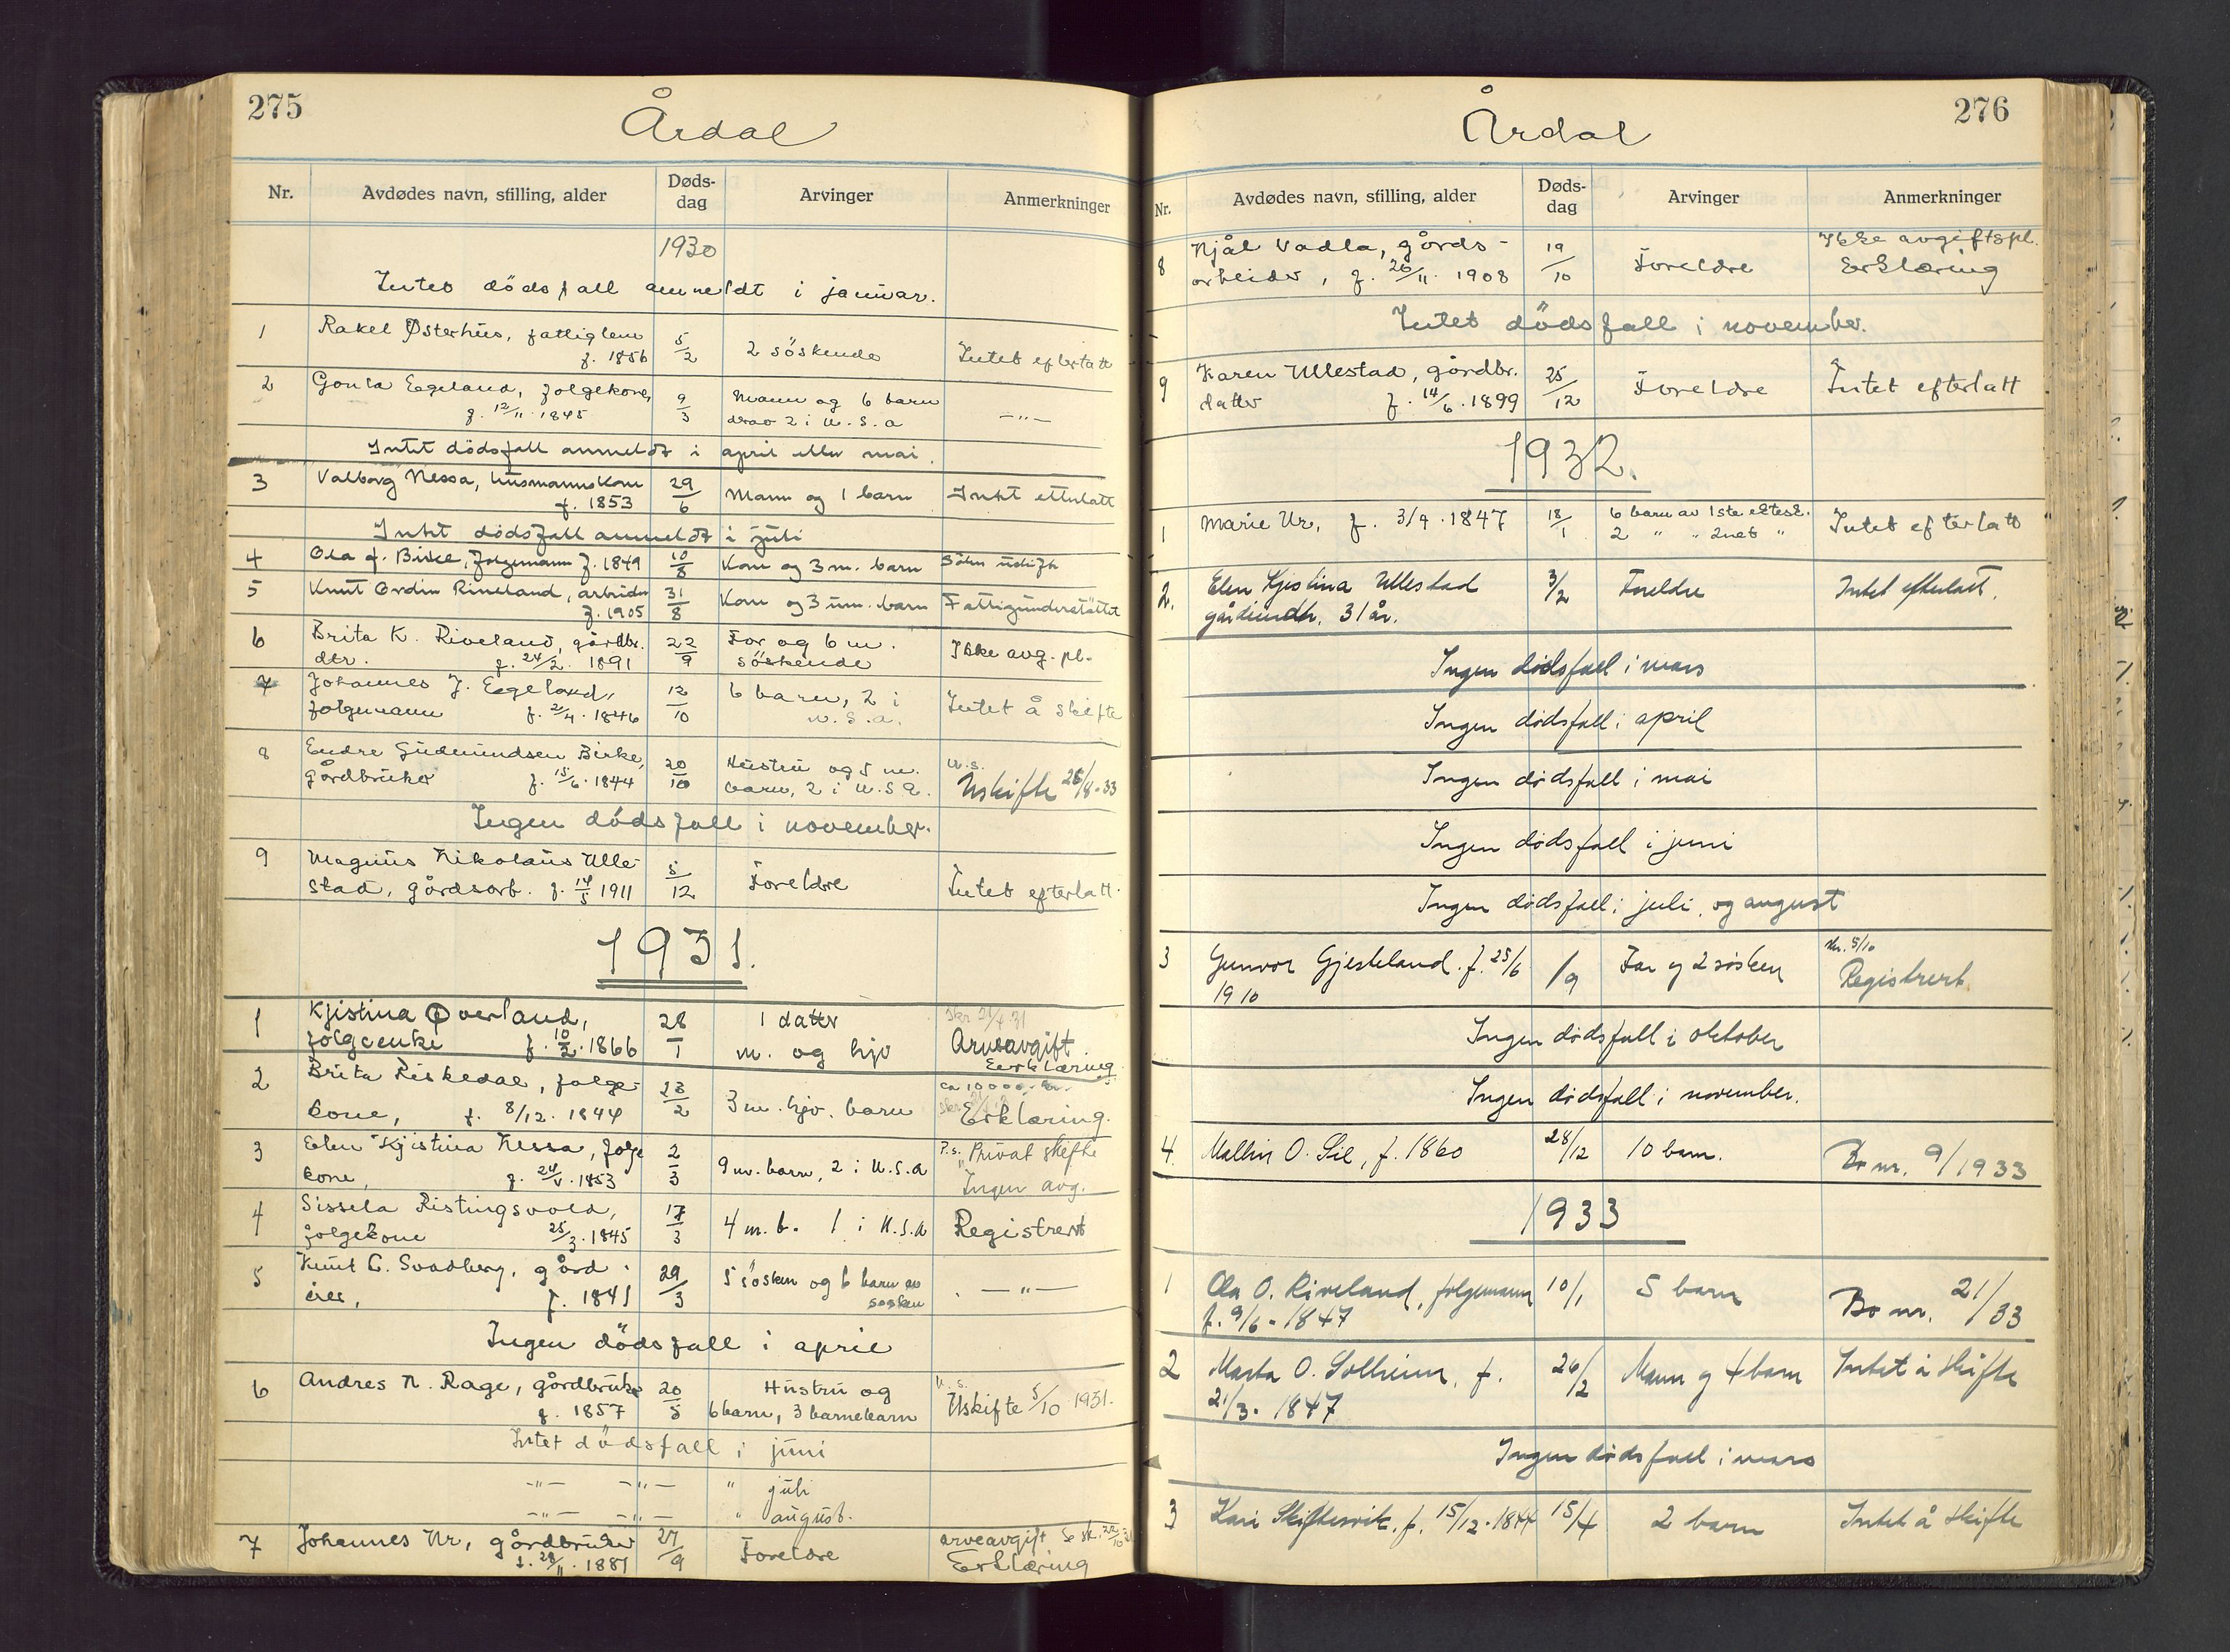 275
Årdal
Nr. Avdødes navn, stilling, alder Døds-dag Arvinger Anmerkninger
1930
Intet dödsfall anmeldt i januar.
1 Rakel Østerhus, fattiglem 5/2 2 söskende Intet efterlatt
f. 1856
2 Gonla Eggeland, folgekone, 9/3 Mann og 6 barn —"—
f. 12/11. 1845 derav 2 i U.S.a
Intet dödsfall anmeldt i april eller mai.
3 Valborg Nessa, husmannskone 29/6 Mann og 1 barn Intet efterlatt
f. 1853
Intet dödsfall anmeldt i juli
4 Ola J. Birke, folgemann f. 1849 10/8 Kone og 3 m. barn
5 Knut Ordin Riveland, arbeider 31/8 Kone og 3 um. barn Fattigunderstöttet
f. 1905
6 Brita K. Riveland, gårdbr. 22/9 Far og 6 m. Ikke avg. pl.
dtr. f. 24/2. 1891 söskende
7 Johannes J. Eggeland, 12/10 6 barn, 2 i Intet å skifte
folgemann f. 2/4. 1846 U.S.a.
8 Endre Gudmundsen Birke, 20/10 Hustru og 5 m. U.s.
gårdbruker f. 15/6. 1844 barn, 2 i U.S.a. Uskifte 26/8-33
Ingen dödsfall i november.
9 Magnus Nikolaus Ulle- 5/12 Foreldre Intet efterlatt.
stad, gårdsarb. f. 14/5 1911
1931.
1 Kjistina Øverland, 28/1 1 datter skr 21/4 31
folgeenke f. 10/2. 1866 m. og hjv Arveavgift
Erklæring
2 Brita Riskedal, folge- 23/2 3 m. hjv. barn ca 10000,- kr.
kone, f. 8/12. 1844 Erklæring.
3 Elen Kjistina Nessa, folge 2/3 9 m. barn, 2 i U.S.a P.s. Privat skifte
kone, f. 24/V. 1853 Ingen avg.
4 Sissela Ristingsvold, 17/3 4 m. b. 1 i U.S.a Registrert
folgekone 25/3. 1845
5 Knut L. Svadberg, gård- 29/3 5 sösken og 6 barn av —"—
eier, f. 1841 sosken
Ingen dödsfall i april
6 Andres N. Rage, gårdbruker 20/5 Hustru og U.s.
f. 1857 6 barn, 3 barnebarn Uskifte 5/10 1931.
Intet dödsfall i juni
—"— —"— " juli
—"— —"— " august.
7 Johannes Ur, gårdbruker 27/9 Foreldre arveavgift
f. 28/11. 1881 Erklæring
276
Årdal
Nr. Avdødes navn, stilling, alder Døds-dag Arvinger Anmerkninger
8 Njål Vadla, gårds- 19/10 Foreldre Ikke avgiftspl.
arbeider, f. 26/11. 1908 Erklæring
Intet dödsfall i november.
9 Karen Ullestad, gårdbr. 25/12 Foreldre Intet efterlatt
datter f. 14/6. 1899
1932.
1 Marie Ur, f. 3/4. 1847 18/1 6 barn av 1ste ektesk. Intet efterlatt
2 " " 2net "
2. Elen Kjistina Ullestad 3/2 Foreldre Intet efterlatt.
31 år.
Ingen dødsfall i mars
Ingen dødsfall i april
Ingen dødsfall i mai
Ingen dødsfall i juni
Ingen dødsfall i juli og august
3 Gunvor Gjesteland. f. 25/6 /9 Far og 2 søsken skr. 5/10
1910 Registrert.
Ingen dødsfall i oktober
Ingen dødsfall i november.
4. Mallin O. Sie, f. 1860 28/12 10 barn. Bo nr. 9/1933
1933
1 Ola O. Riveland, folgemann 10/1 5 barn Bo nr. 21/33
f. 9/6. 1847
2 Marta O. Solheim, f. 26/2 Mann og 4 barn Intet å skifte
21/3. 1847
Ingen dødsfall i mars
3 Kari Skiftesvik, f. 15/12. 1844 15/4 2 barn Intet å skifte